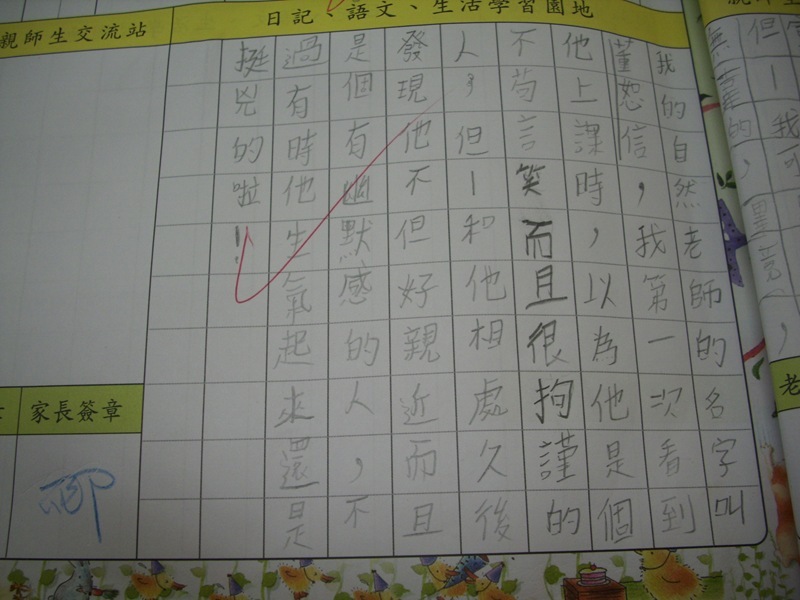 日記、語文、生活學習園地
我的自然老師的名字叫
董恕信，我第一次看到
他上課時，以為他是個
不苟言笑而且很拘謹的
人，但一和他相處久後
發現他不但好親近而且
是個有幽默感的人，不
過有時他生氣起來還是
挺兇的啦!!
親師生交流站
家長簽章